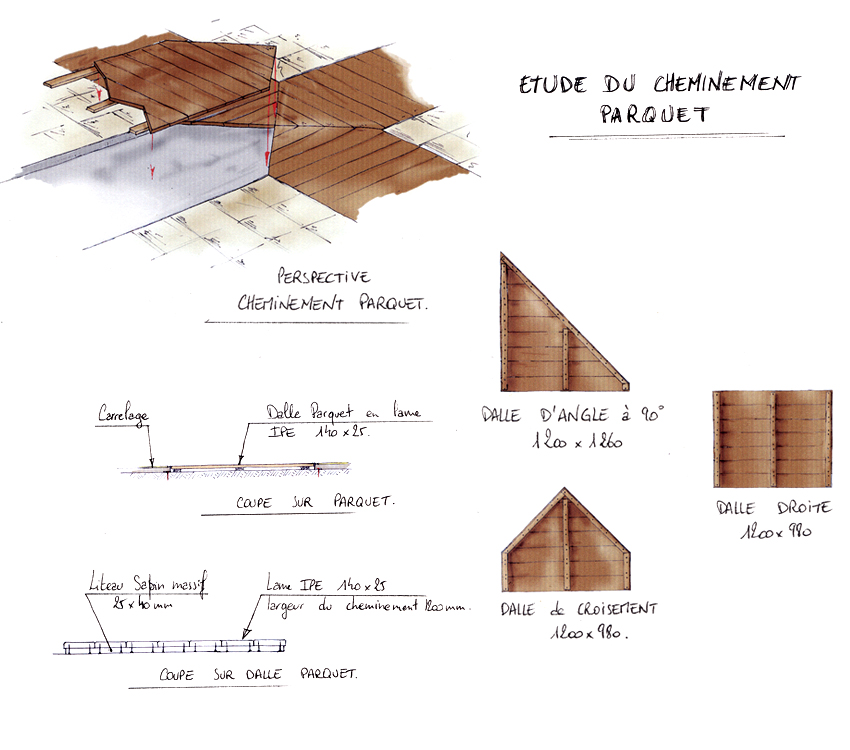 ETUDE DU CHEMINEMENT
PARQUET
PERSPECTIVE
CHEMINEMENT PARQUET.
Carrelage
Dalle Parquet en lame
IPE 140 x 25.
COUPE SUR PARQUET.
Liteau Sapin massif
25 x 40 mm
Lame IPE 140 x 25
largeur du cheminement 1200 mm.
COUPE SUR DALLE PARQUET.
DALLE D'ANGLE à 90°
1200 x 1260
DALLE DROITE
1200 x 980
DALLE de CROISEMENT
1200 x 980.